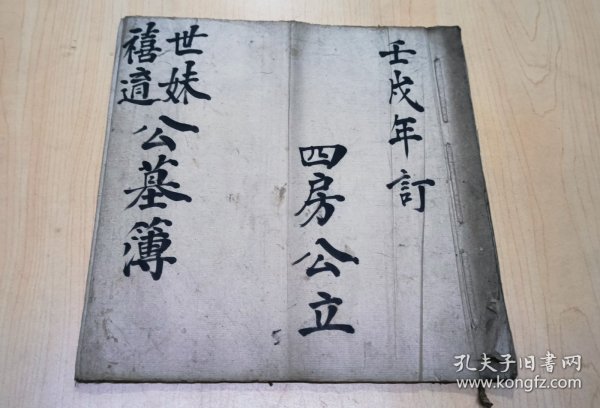 壬戌年訂
四房公立
世妹
禧適
公墓簿
孔夫子旧書网
www.kongfz.com